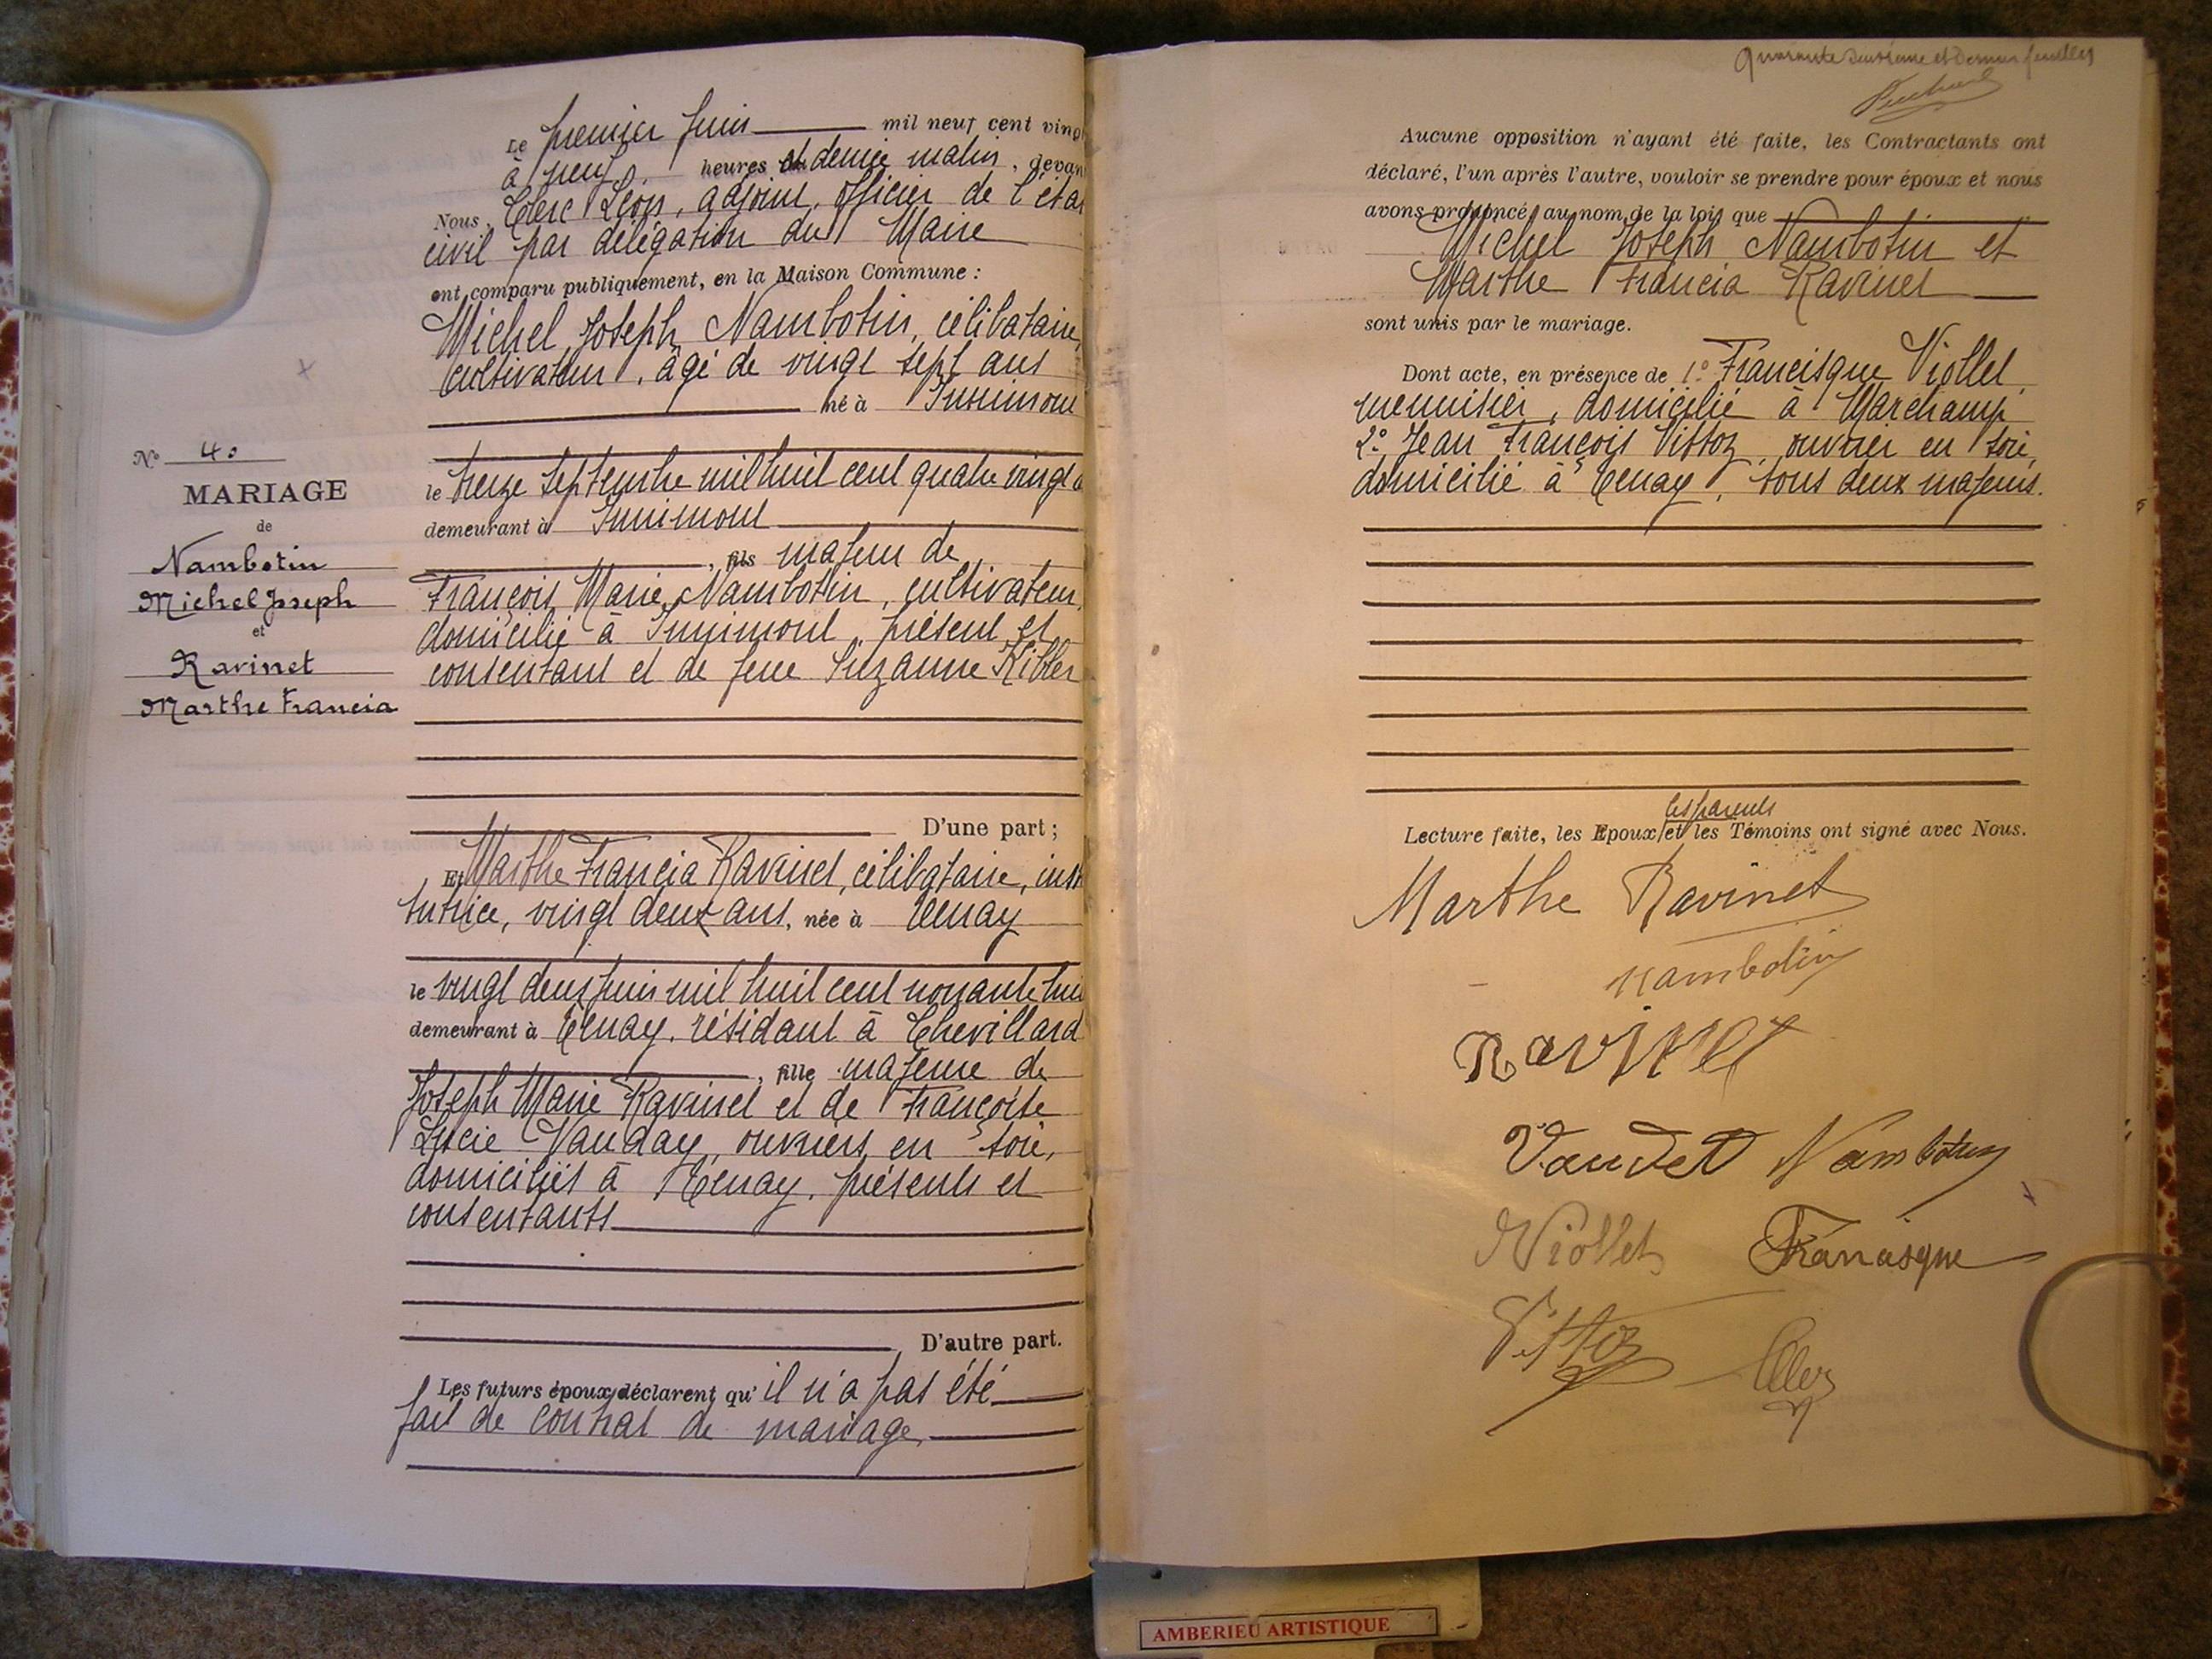 Le premier juin mil neuf cent ving
à neuf heures et demie matin, devan
Nous, Clerc Léon, adjoint, officier de l'éta
civil par délégation du Maire
ont comparu publiquement, en la Maison Commune :
Michel Joseph Nambotin, célibataire,
cultivateur, âgé de vingt sept ans
né à Innimont
le treize septembre mil huit cent quatre vingt
demeurant à Innimont
, fils majeur de
François Marie Nambotin, cultivateur,
domicilié à Innimont, présent et
consentant et de feue Suzanne Kibler
D'une part ;
Et Marthe Francia Ravinet, célibataire, inst
tutrice, vingt deux ans, née à Tenay
le vingt deux juin mil huit cent nonante hui
demeurant à Tenay, résidant à Chevillard
, fille majeure de
Joseph Marie Ravinet et de Françoise
Lucie Vauday, ouvriers en soie,
domiciliés à Tenay, présents et
consentants
D'autre part.
Les futurs époux déclarent qu' il n'a pas été
fait de contrat de mariage.
N° 40
MARIAGE
de
Nambotin
Michel Joseph
et
Ravinet
Marthe Francia
Quarante deuxième et dernier feuillet
Aucune opposition n'ayant été faite, les Contractants ont
déclaré, l'un après l'autre, vouloir se prendre pour époux et nous
avons prononcé, au nom de la loi, que
Michel Joseph Nambotin et
Marthe Francia Ravinet
sont unis par le mariage.
Dont acte, en présence de 1° Francisque Viollet,
menuisier, domicilié à Marchamp
2° Jean François Vittoz, ouvrier en soie,
domicilié à Tenay, tous deux majeurs.
les parents
Lecture faite, les Epoux et les Témoins ont signé avec Nous.
Marthe Ravinet
Nambotin
Ravinet
Vaudet Nambotin
Viollet Francisque
Vittoz Clerc
AMBERIEU ARTISTIQUE